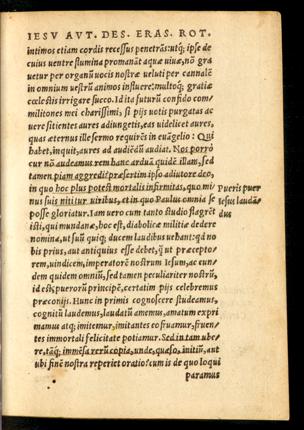 IESV AVT. DES. ERAS. ROT.
intimos etiam cordis recessus penetrās: utq; ipse de
cuius uentre flumina promanāt aquæ uiuæ, nō gra
uetur per organū uocis nostræ ueluti per cannalē
in omnium uestrū animos influere: multoq; gratiæ
cœlestis irrigare succo. Id ita futurū confido com/
militones mei charissimi, si pijs uotis purgatas ac
uere sitientes aures adiungetis, eas uidelicet aures,
quas æternus ille sermo requirēs in euāgelio: Qui
habet, inquit, aures ad audiēdū audiat. Nos porrò
cur nō audeamus rem hanc arduā quidē illam, sed
tamen piam aggredi: præsertim ipso adiutore deo,
in quo hoc plus potest mortalis infirmitas, quo mi/
nus suis nititur uiribus, et in quo Paulus omnia se
posse gloriatur. Iam uero cum tanto studio flagrēt
isti, qui mundanæ, hoc est, diabolicæ militiæ dedere
nomina, ut suū quisq; ducem laudibus uehant: qd no
bis prius, aut antiquius esse debet, q̄ ut præcepto/
rem, uindicem, imperatorē nostrum Iesum, ac eun/
dem quidem omniū, sed tamen peculiariter nostrū,
id est, puerorū principē, certatim pijs celebremus
præconijs. Hunc in primis cognoscere studeamus,
cognitū laudemus, laudatū amemus, amatum expri
mamus atq; imitemur, imitantes eo fruamur, fruen/
tes immortali felicitate potiamur. Sed in tam ube/
re, tāq; immēsa rerū copia, unde, quæso, initiū, aut
ubi finē nostra reperiet oratio: cum is de quo loqui
paramus
Pueris puer
Iesus laudā/
dus